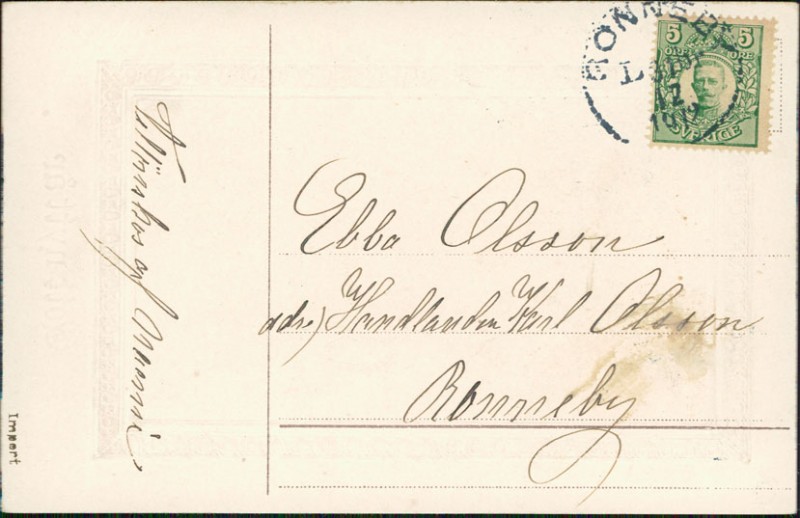 RONNEBY
5 5
ÖRE ÖRE
12
SVERIGE
Tillönskas af Naemi
Ebba Olsson
adr) Handlanden Karl Olsson
Ronneby
Import